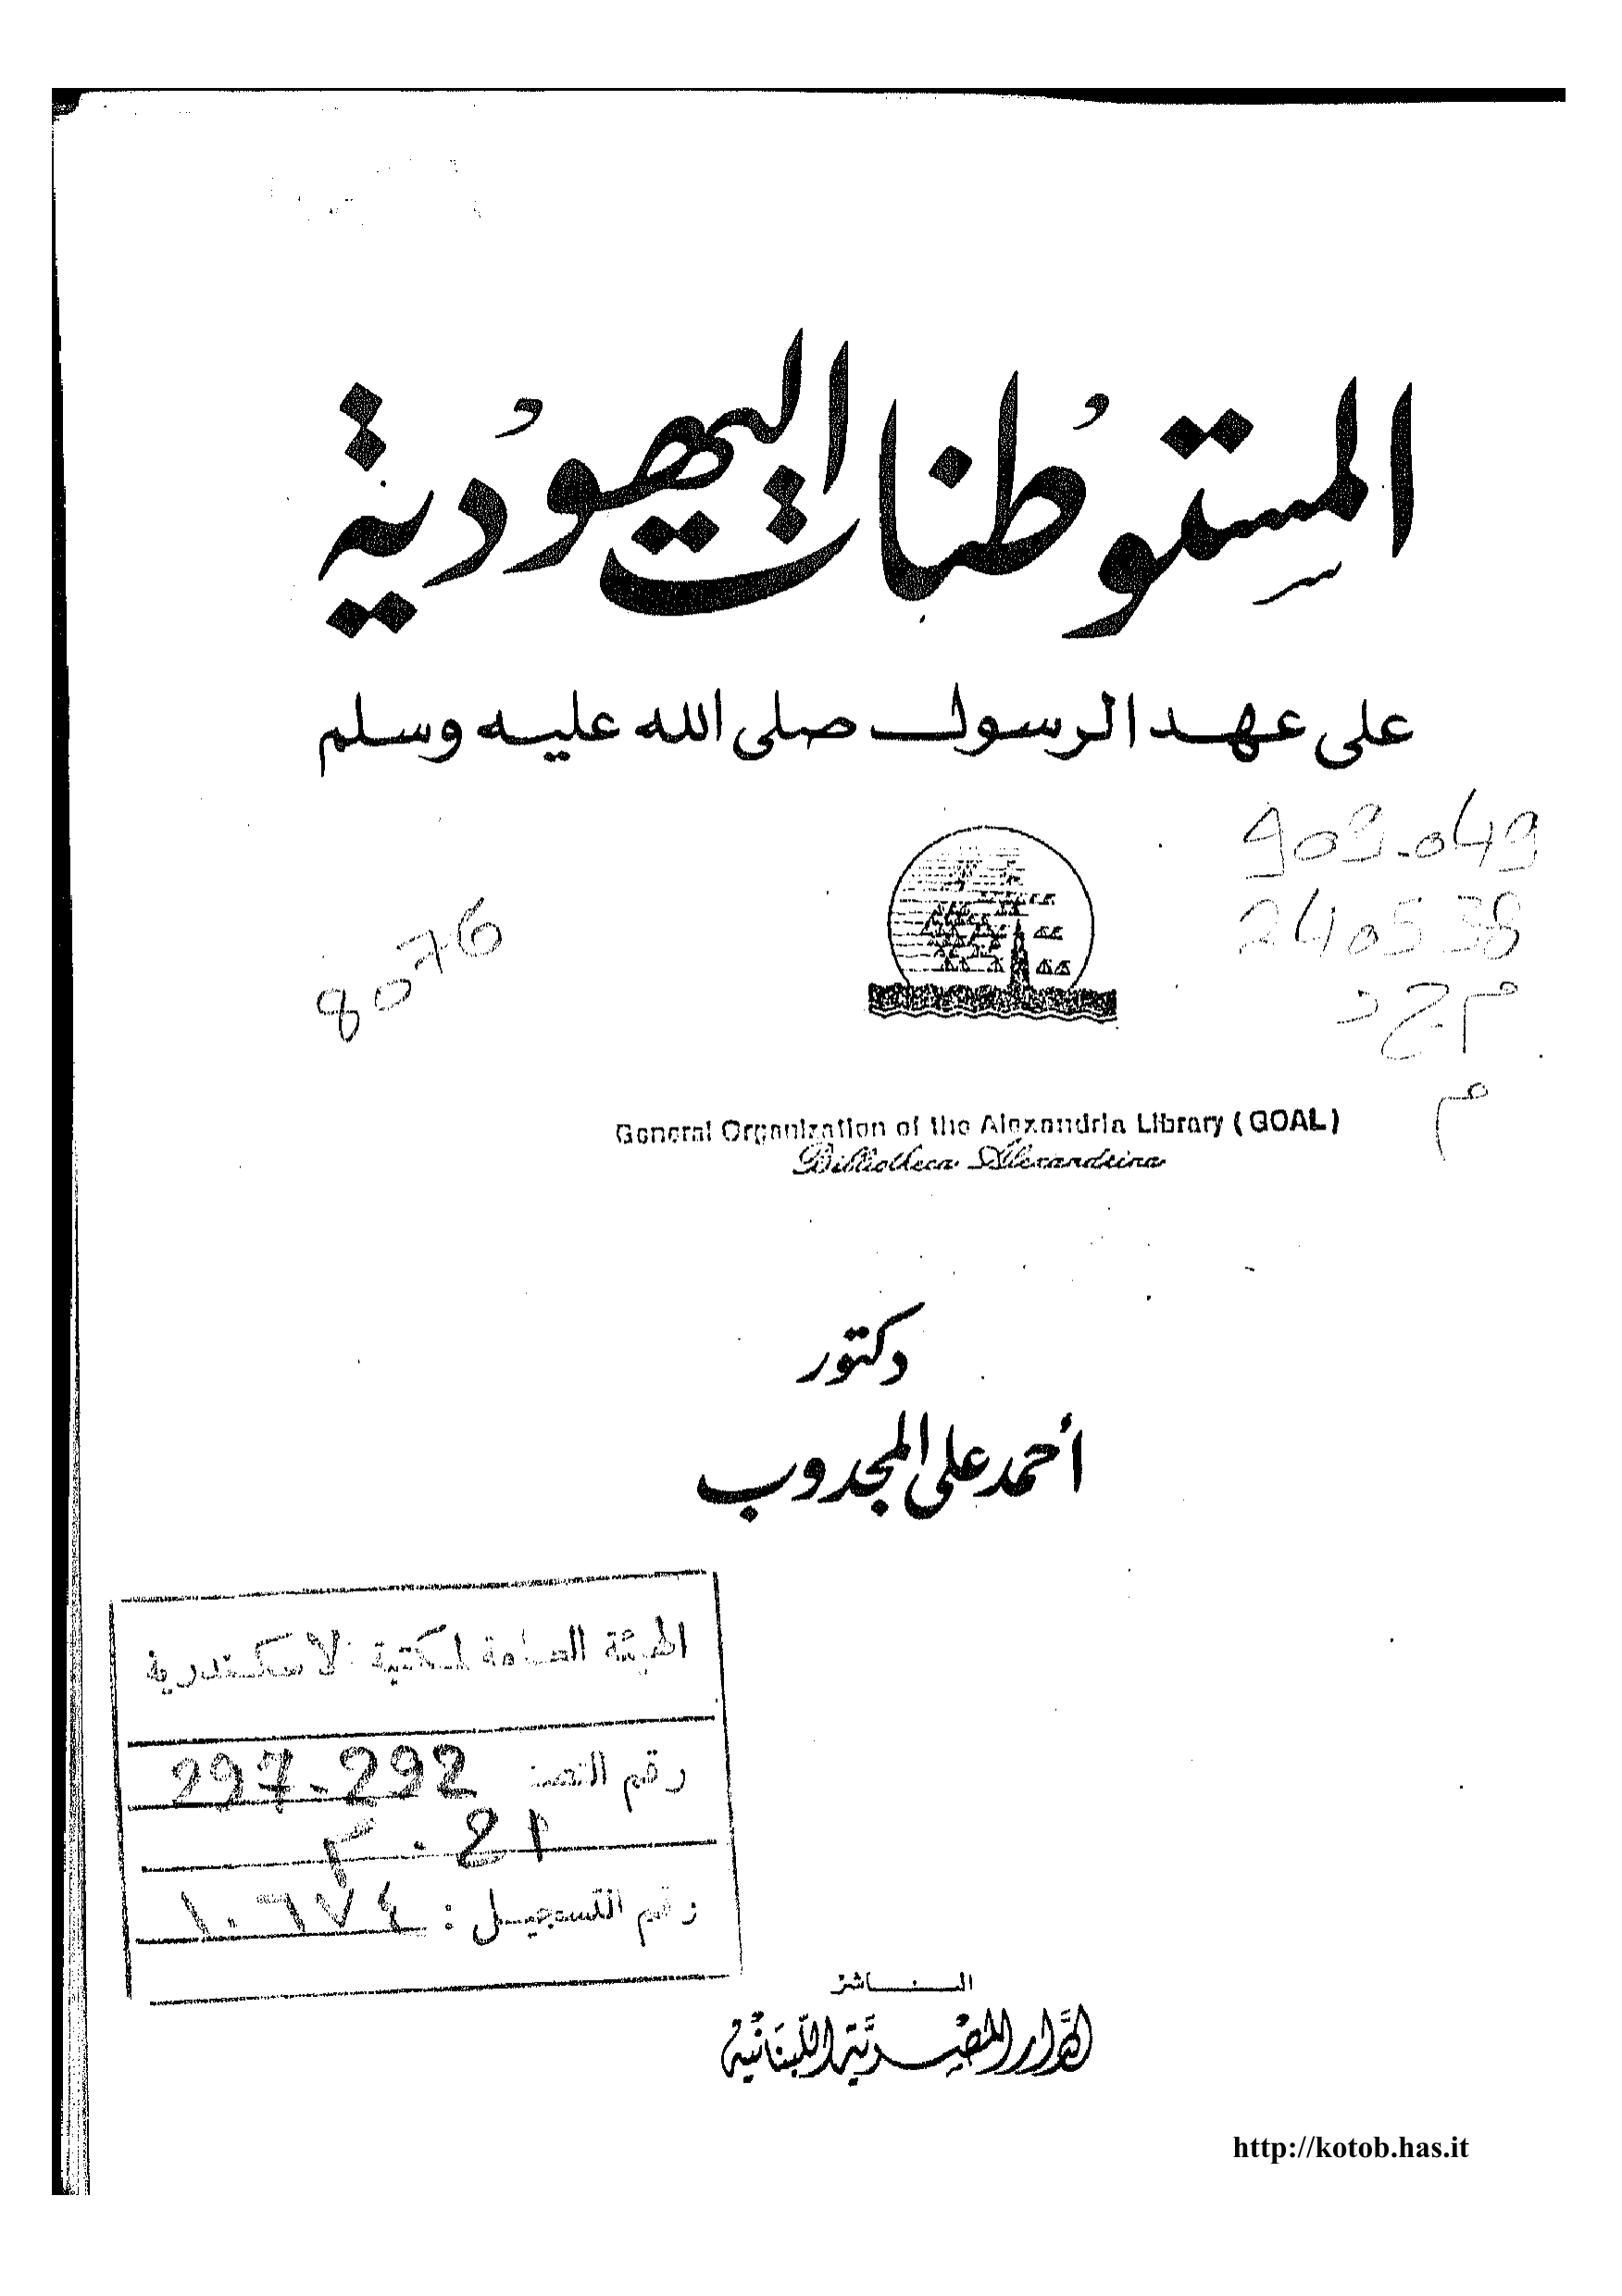 المستوطنات اليهودية
على عهد الرسول صلى الله عليه وسلم
909.049
240538
م ج د
م
8076
General Organization of the Alexandria Library (GOAL)
Bibliotheca Alexandrina
دكتور
أحمد على المجدوب
الهيئة العامة لمكتبة الاسكندرية
رقم التصنـ 297.292
رقم التسجيل : ١٠٦٧٤
الناشر
الدار المصرية اللبنانية
http://kotob.has.it